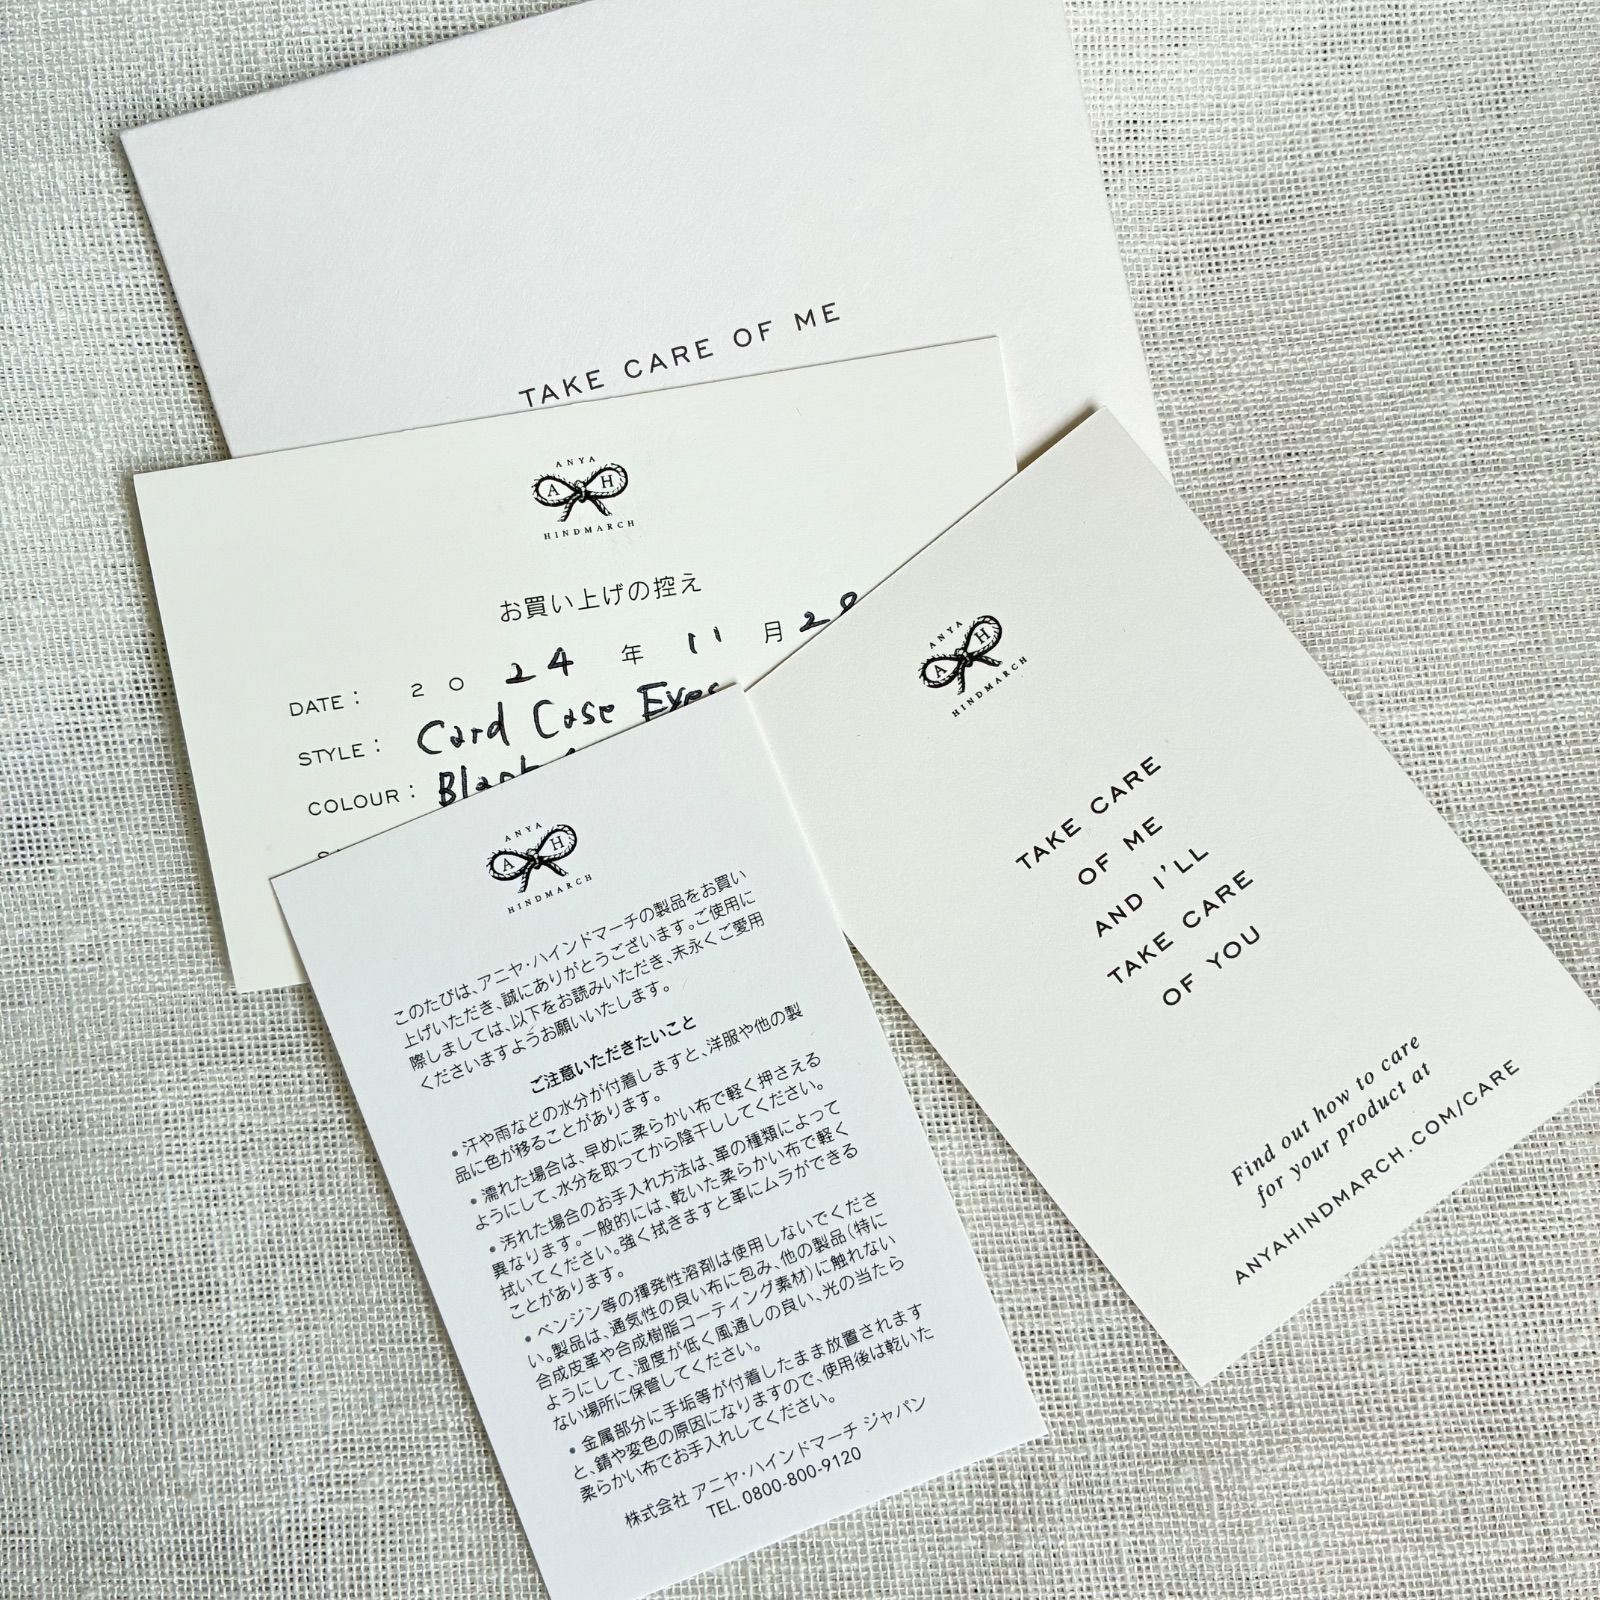 TAKE CARE OF ME
ANYA
A H
HINDMARCH
お買い上げの控え
DATE： 2 0 24 年 11 月
STYLE： Card Case Eyes
COLOUR：
ANYA
A H
HINDMARCH
TAKE CARE
OF ME
AND I'LL
TAKE CARE
OF YOU
Find out how to care
for your product at
ANYAHINDMARCH.COM/CARE
ANYA
A H
HINDMARCH
このたびは、アニヤ・ハインドマーチの製品をお買い
上げいただき、誠にありがとうございます。ご使用に
際しましては、以下をお読みいただき、末永くご愛用
くださいますようお願いいたします。
ご注意いただきたいこと
• 汗や雨などの水分が付着しますと、洋服や他の製
品に色が移ることがあります。
• 濡れた場合は、早めに柔らかい布で軽く押さえる
ようにして、水分を取ってから陰干ししてください。
• 汚れた場合のお手入れ方法は、革の種類によって
異なります。一般的には、乾いた柔らかい布で軽く
拭いてください。強く拭きますと革にムラができる
ことがあります。
• ベンジン等の揮発性溶剤は使用しないでくださ
い。製品は、通気性の良い布に包み、他の製品（特に
合成皮革や合成樹脂コーティング素材）に触れない
ようにして、湿度が低く風通しの良い、光の当たら
ない場所に保管してください。
• 金属部分に手垢等が付着したまま放置されます
と、錆や変色の原因になりますので、使用後は乾いた
柔らかい布でお手入れしてください。
株式会社 アニヤ・ハインドマーチ ジャパン
TEL. 0800-800-9120